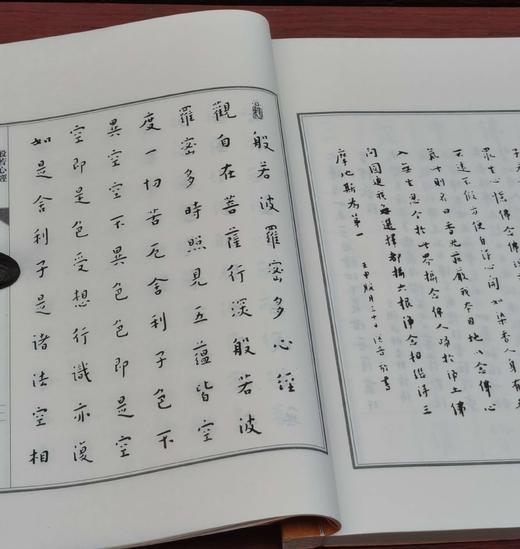 眾生心憶佛念佛
不遠不假方便自得心開如染香人身有
氣此則名曰香光莊嚴我本因地以念佛心
入無生忍今於此界攝念佛人歸於淨土佛
問圓通我無選擇都攝六根淨念相繼得三
摩地斯為第一
般若波羅密多心經
觀自在菩薩行深般若波
羅密多時照見五蘊皆空
度一切苦厄舍利子色不
異空空不異色色即是空
空即是色受想行識亦復
如是舍利子是諸法空相
般若心經